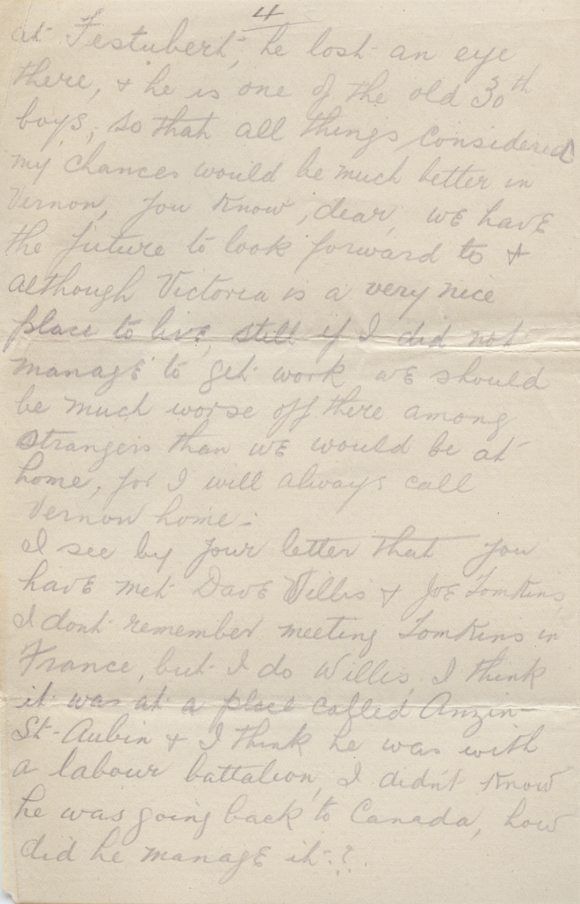 4
at Festubert, he lost an eye
there, & he is one of the old 30th
boys, so that all things considered
my chances would be much better in
Vernon, you know, dear, we have
the future to look forward to &
although Victoria is a very nice
place to live, still if I did not
manage to get work we should
be much worse off there among
strangers than we would be at
home, for I will always call
Vernon home.
I see by your letter that you
have met Dave Willis & Joe Tomkins,
I dont remember meeting Tomkins in
France, but I do Willis, I think
it was at a place called Anzin-
St-Aubin & I think he was with
a labour battalion, I didn't know
he was going back to Canada, how
did he manage it?